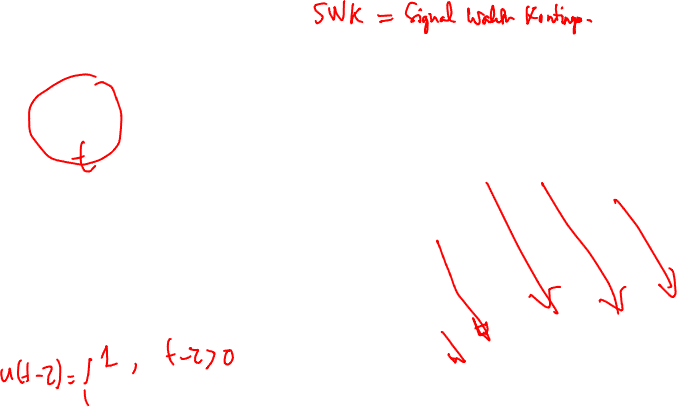 SWK = Signal Waktu Kontinyu.
t
u(t-2) = { 1, t-2>0